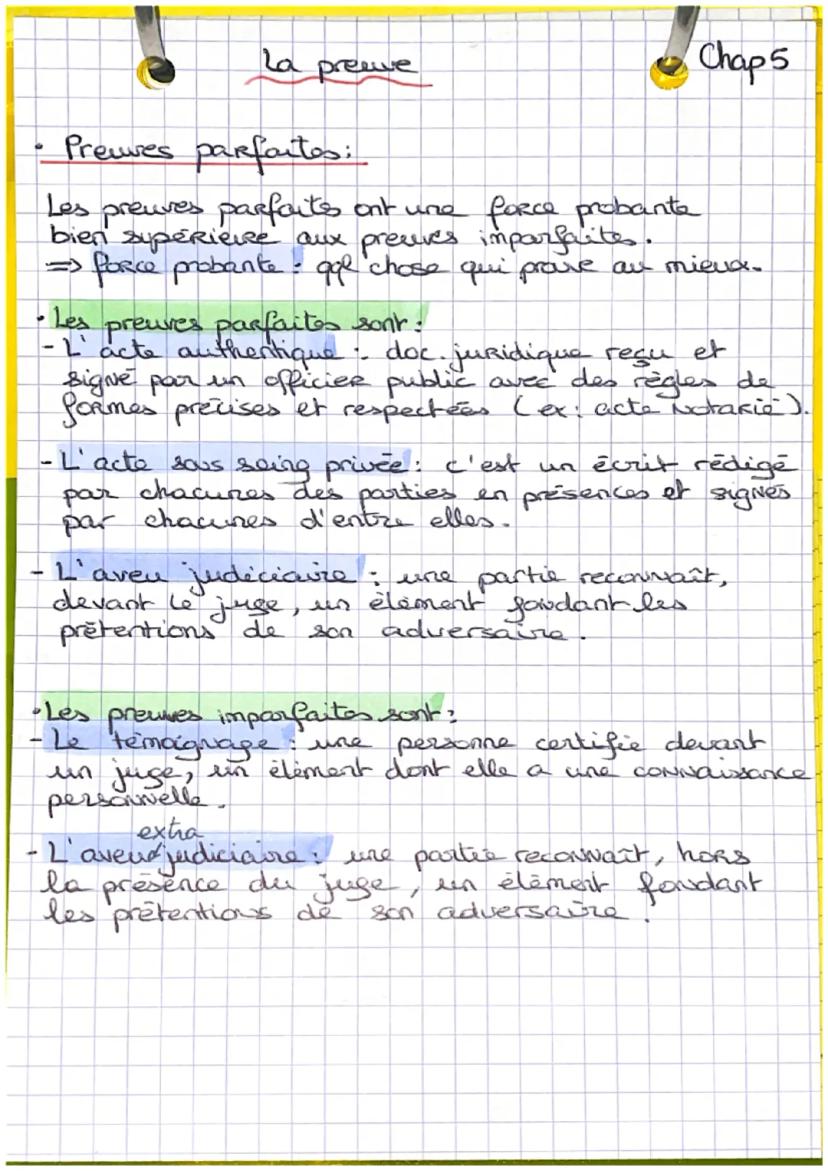 La preuve
Chap 5
• Preuves parfaites :
Les preuves parfaites ont une force probante
bien supérieure aux preuves imparfaites.
=> force probante : qql chose qui prouve au mieux.
• Les preuves parfaites sont :
- L'acte authentique : doc. juridique reçu et
signé par un officier public avec des règles de
formes précises et respectées (ex : acte Notarié).
- L'acte sous seing privée : c'est un écrit rédigé
par chacunes des parties en présences et signés
par chacunes d'entre elles.
- L'aveu judéciaire : une partie reconnaît,
devant le juge, un élément fondant les
prétentions de son adversaire.
• Les preuves imparfaites sont :
- Le témoignage : une personne certifie devant
un juge, un élément dont elle a une connaissance
personnelle.
extra
- L'aveu judiciaire : une partie reconnaît, hors
la présence du juge, un élément fondant
les prétentions de son adversaire.